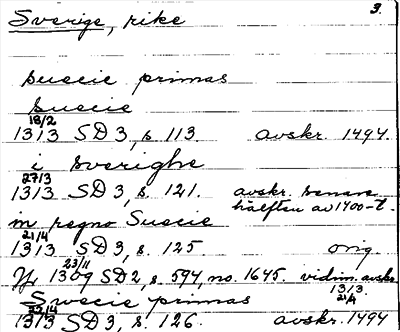 Sverige, rike 3.
suecie primas
suecie
18/2
1313 SD 3, s. 113. avskr. 1494.
i sverighe
27/3
1313 SD 3, s. 121. avskr. senare
hälften av 1400-t.
in regno Suecie
21/4
1313 SD 3, s. 125. orig.
Jfr 23/11
1309 SD 2, s. 594, no. 1645. vidim. avskr.
1313
21/4.
Swecie primas
23/4
1313 SD 3, s. 126. avskr. 1494